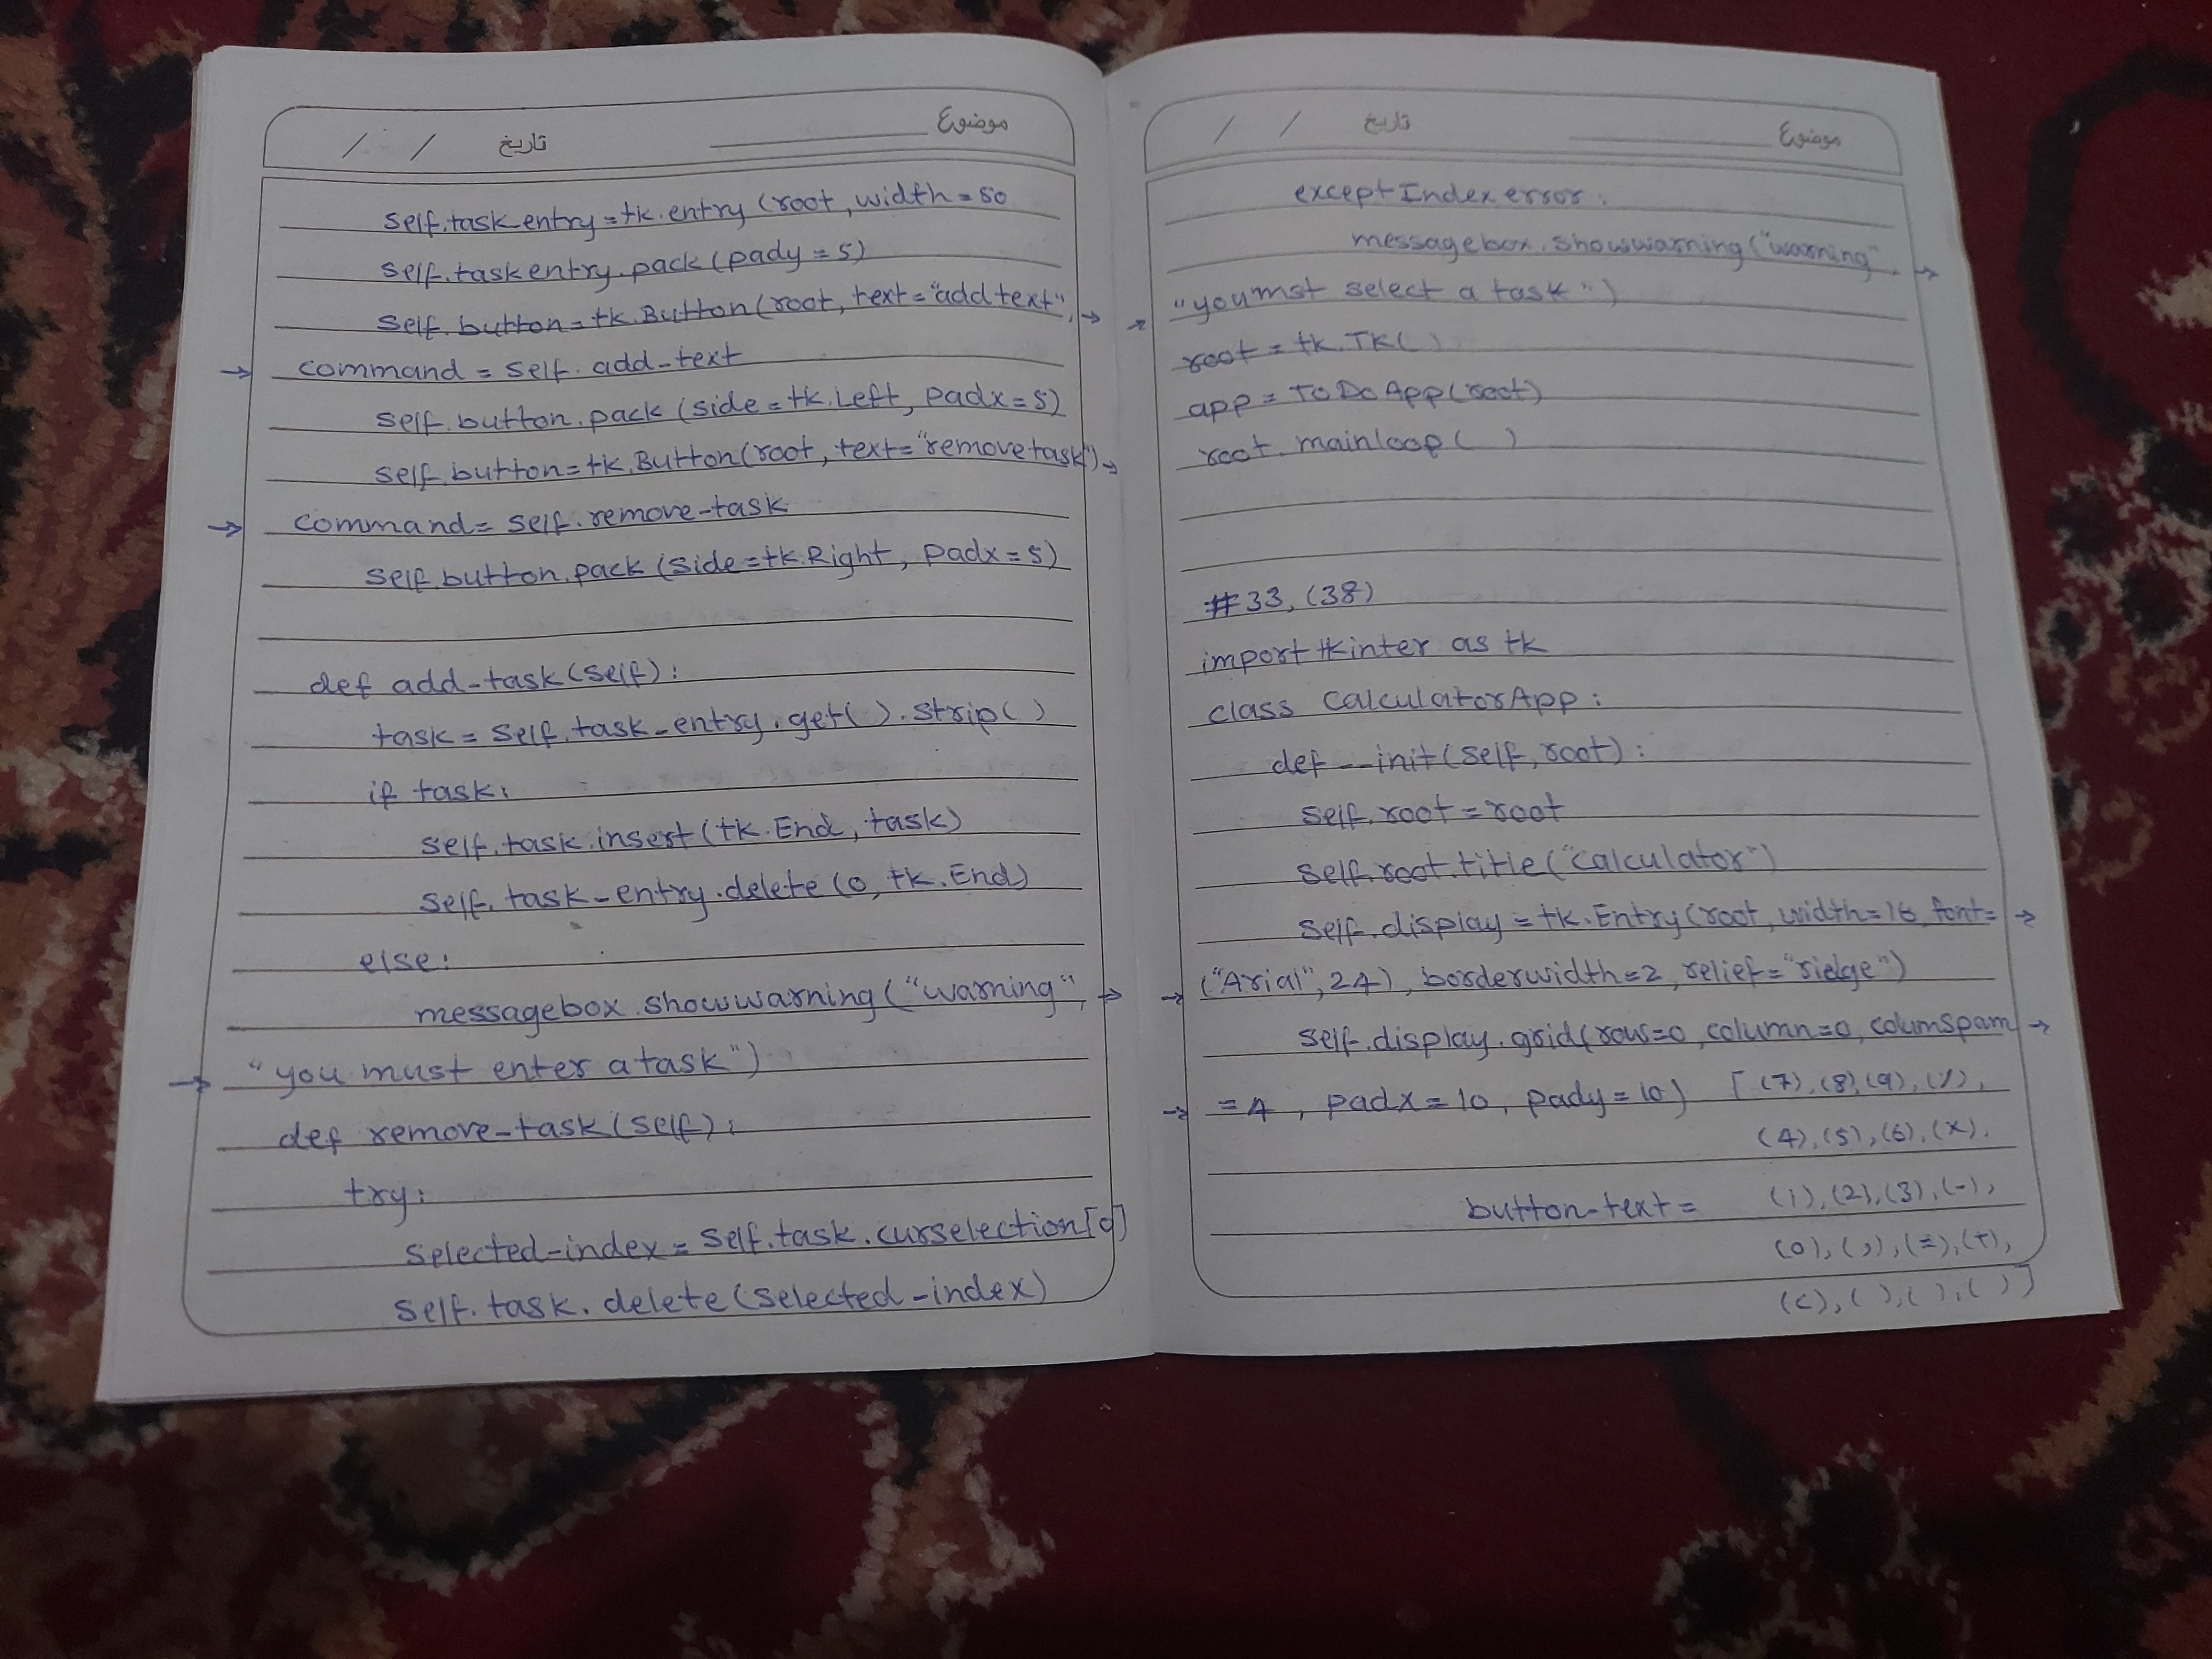 تاریخ / / موضوع
self.task_entry=tk.entry(root,width=50
self.taskentry.pack(pady=5)
self.button=tk.Button(root,text="addtext",→
→ command=self.add-text
self.button.pack(side=tk.Left,padx=5)
self.button=tk.Button(root,text="removetask")→
→ command=self.remove-task
self.button.pack(side=tk.Right,padx=5)
def add-task(self):
task=self.task-entry.get().strip()
if task:
self.task.insert(tk.End,task)
self.task-entry.delete(0,tk.End)
else:
messagebox.showwarning("warning",→
→ "you must enter a task")
def remove-task(self):
try:
selected-index=self.task.curselection[0]
self.task.delete(selected-index)
تاریخ / / موضوع
exceptIndexerror:
messagebox.showwarning("warning",→
→ "you mst select a task")
root=tk.Tk()
app=ToDoApp(root)
root.mainloop()
#33,(38)
import tkinter as tk
class calculatorApp:
def--init(self,root):
self.root=root
self.root.title("calculator")
self.display=tk.Entry(root,width=16,font=→
→ ("Arial",24),borderwidth=2,relief="ridge")
self.display.grid(row=0,column=0,columspam→
→ =4,padx=10,pady=10) [(7),(8),(9),(/),
(4),(5),(6),(x),
button-text= (1),(2),(3),(-),
(0),(,),(=),(+),
(c),( ),( ),( )]